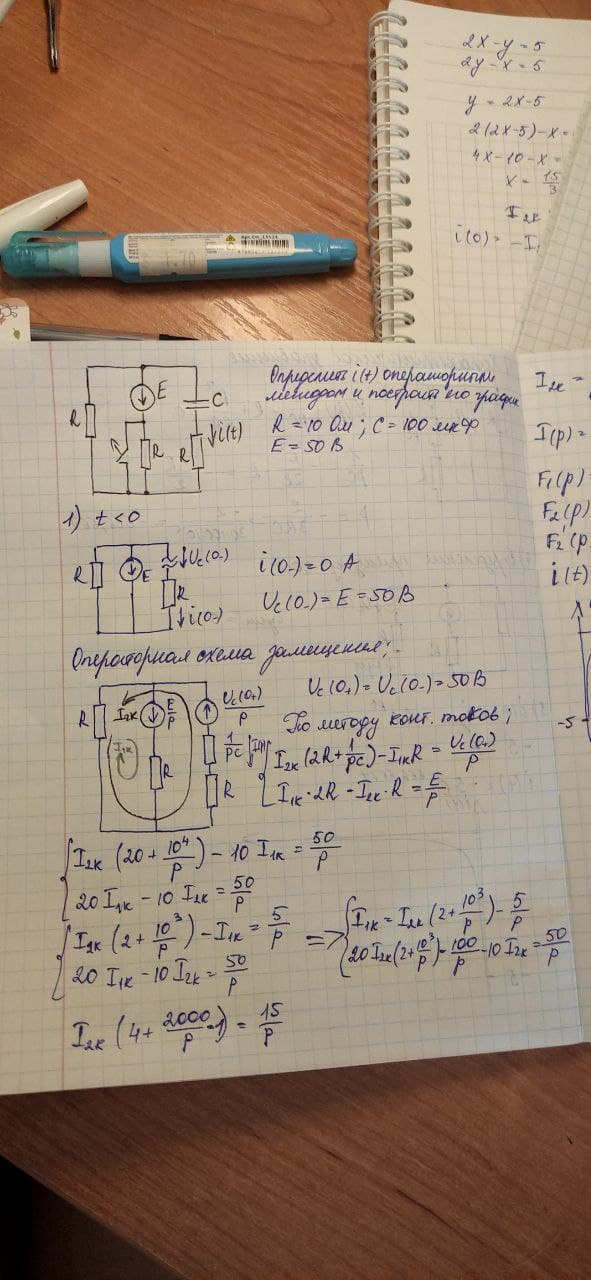 2x-y=5
2y-x=5
y=2x-5
2(2x-5)-x=
4x-10-x=
x=15/3
I₂ₖ
i(0)=-I₁
1.70
R
E
C
R
R
↓i(t)
Определить i(t) операторным
методом и построить его график
R=10 Ом; C=100 мкФ
E=50 В
1) t<0
R
E
↓Uc(0-)
R
↓i(0-)
i(0-)=0 A
Uc(0-)=E=50 В
Операторная схема замещения:
R
I₂ₖ
I₁ₖ
E/p
R
Uc(0+)/p
1/pC
I(p)
R
Uc(0+)=Uc(0-)=50 В
По методу конт. токов;
I₂ₖ(2R+1/pC)-I₁ₖR=Uc(0+)/p
I₁ₖ·2R-I₂ₖ·R=E/p
I₂ₖ(20+10⁴/p)-10 I₁ₖ=50/p
20 I₁ₖ-10 I₂ₖ=50/p
I₂ₖ(2+10³/p)-I₁ₖ=5/p
20 I₁ₖ-10 I₂ₖ=50/p
=> I₁ₖ=I₂ₖ(2+10³/p)-5/p
20 I₂ₖ(2+10³/p)-100/p-10 I₂ₖ=50/p
I₂ₖ(4+2000/p-1)=15/p
I₂ₖ=
I(p)=
F₁(p)=
F₂(p)
F₂'(p
i(t)
-5